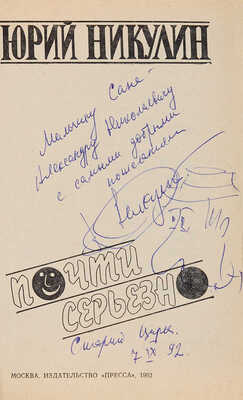 ЮРИЙ НИКУЛИН
Мальчику Сане
Александру Николаевичу
с самыми добрыми
пожеланиями
Никулин
ПОЧТИ
СЕРЬЕЗНО
Старый Цирк.
7 IX 92.
МОСКВА. ИЗДАТЕЛЬСТВО «ПРЕССА», 1992